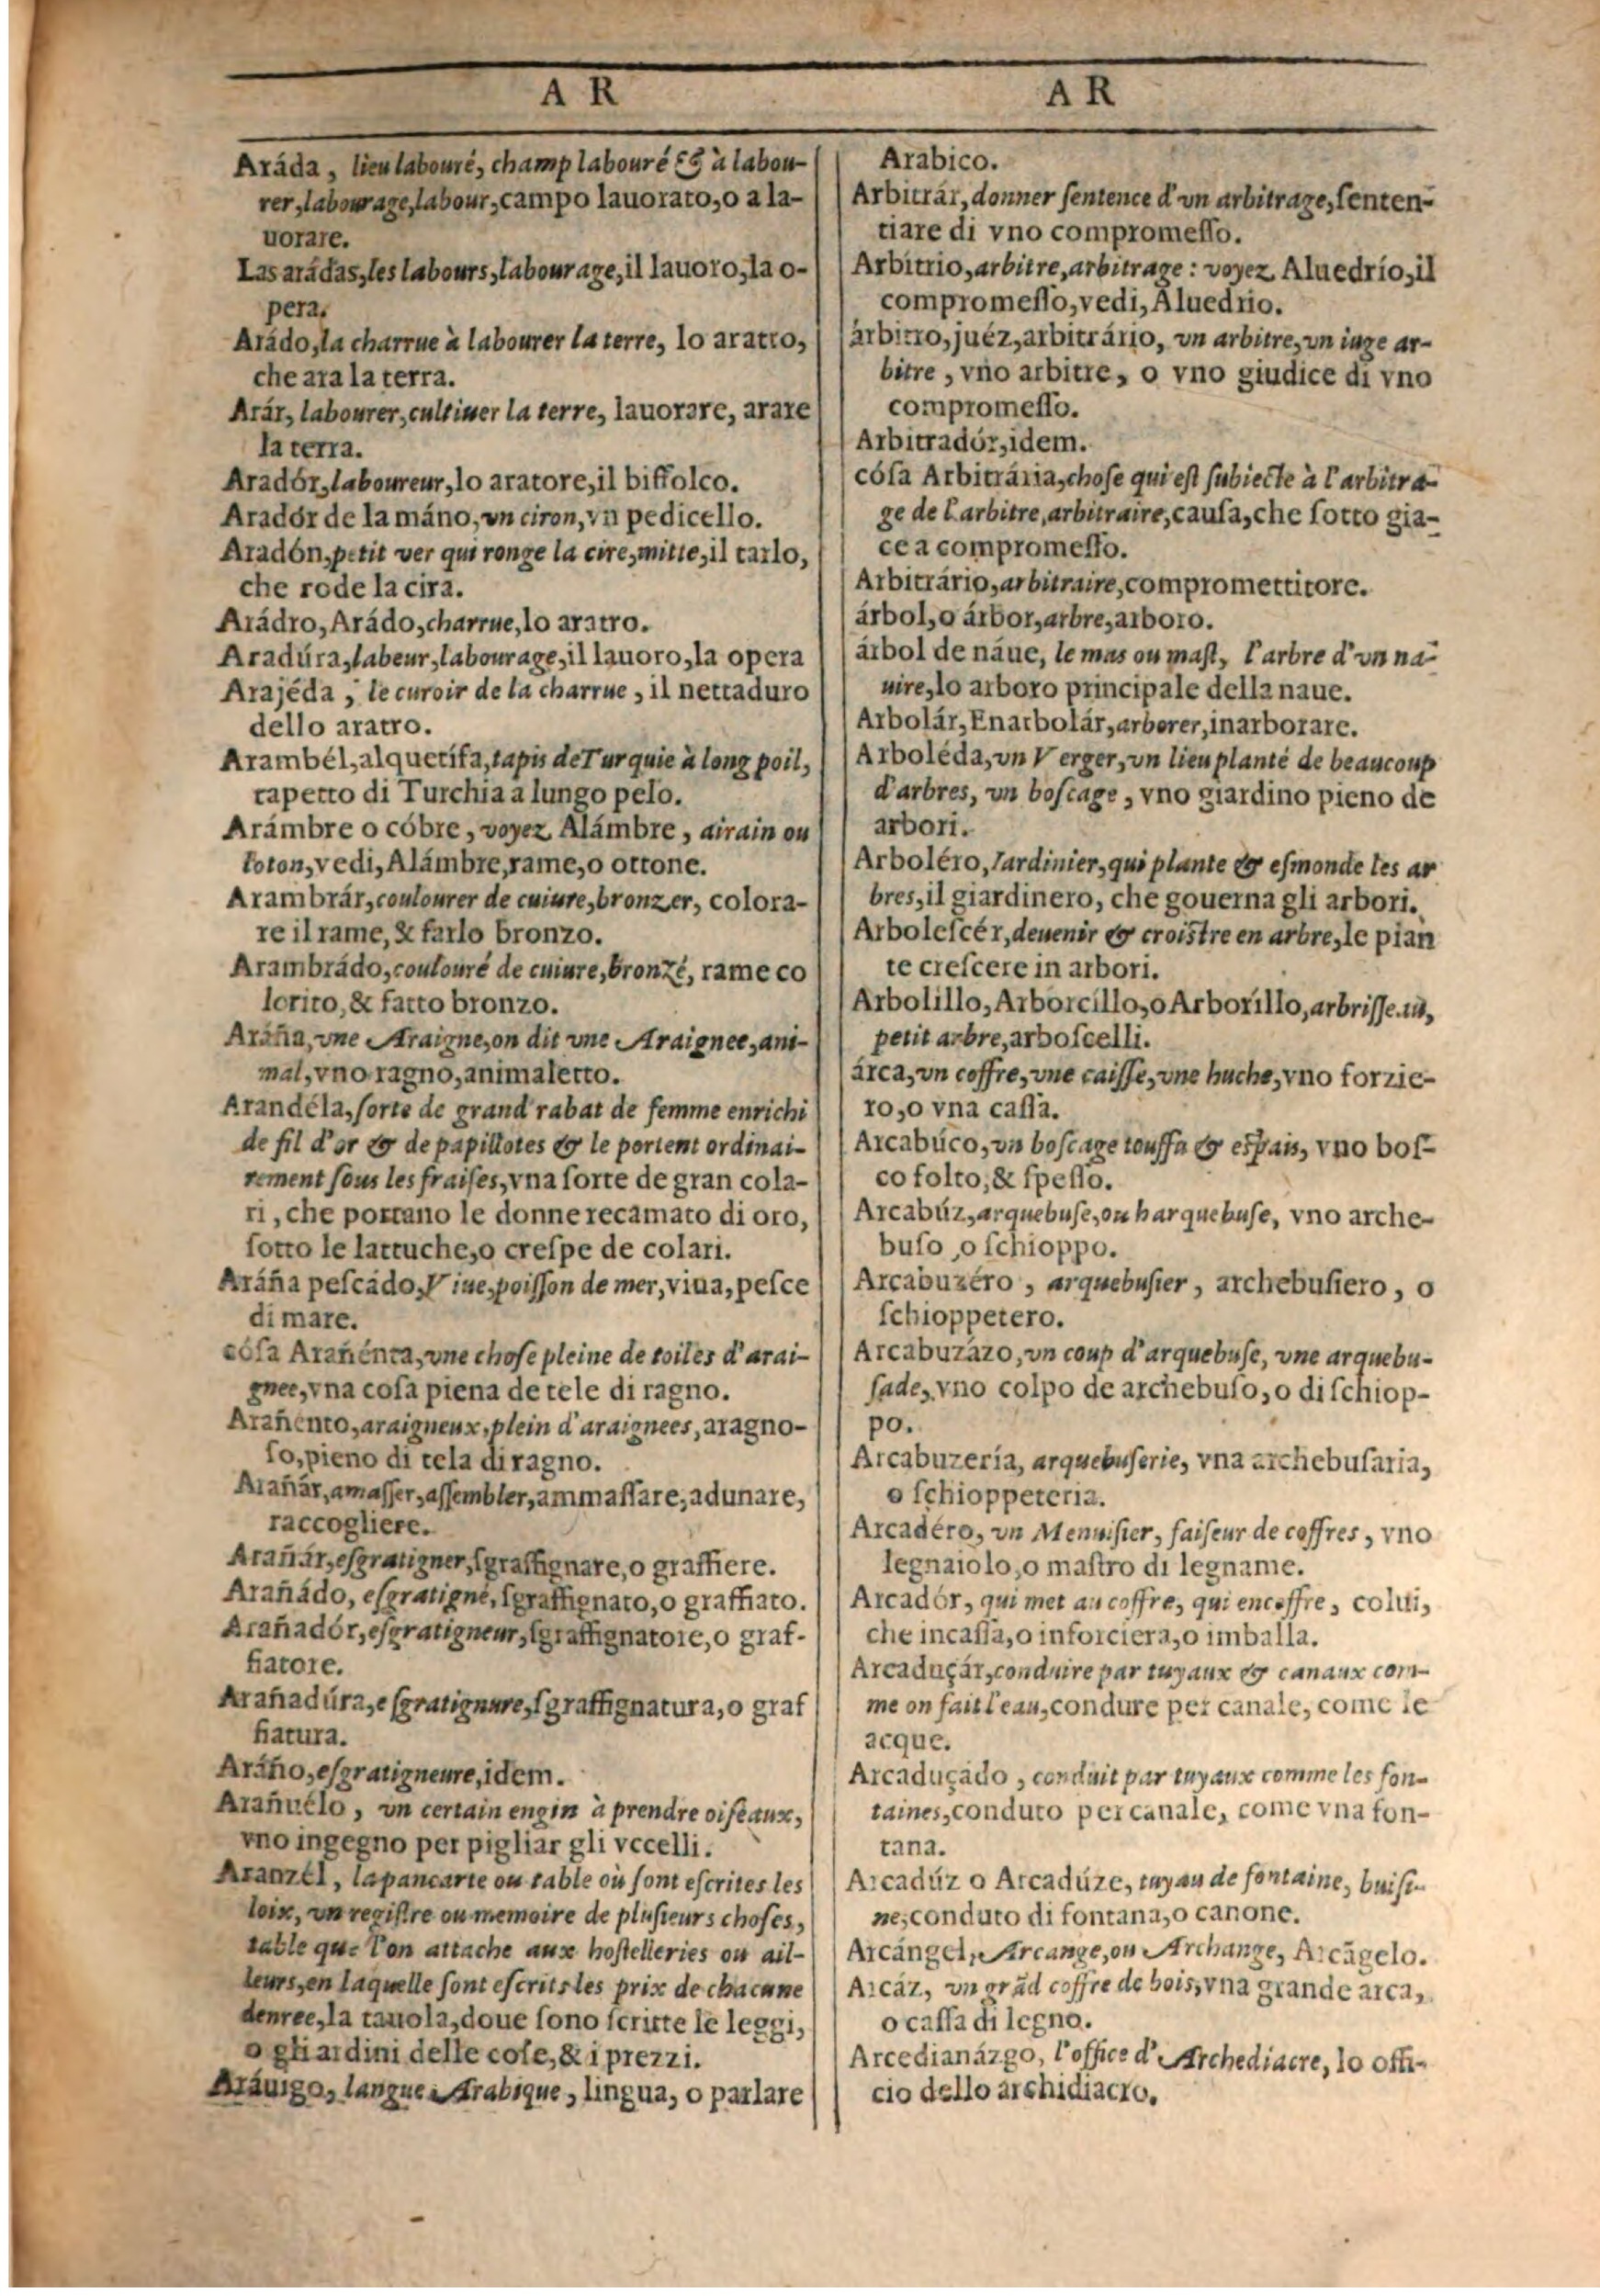 A R
Aráda, lieu labouré, champ labouré & à labou-
rer, labourage, labour, campo lauorato, o a la-
uorare.
Las arádas, les labours, labourage, il lauoro, la o-
pera.
Arádo, la charrue à labourer la terre, lo aratro,
che ara la terra.
Arár, labourer, cultiuer la terre, lauorare, arare
la terra.
Aradór, laboureur, lo aratore, il biffolco.
Aradór de la máno, vn ciron, vn pedicello.
Aradón, petit ver qui ronge la cire, mitte, il tarlo,
che rode la cira.
Arádro, Arádo, charrue, lo aratro.
Aradúra, labeur, labourage, il lauoro, la opera
Arajéda, le curoir de la charrue, il nettaduro
dello aratro.
Arambél, alquetífa, tapis de Turquie à long poil,
tapetto di Turchia a lungo pelo.
Arámbre o cóbre, voyez Alámbre, airain ou
loton, vedi, Alámbre, rame, o ottone.
Arambrár, coulourer de cuiure, bronzer, colora-
re il rame, & farlo bronzo.
Arambrádo, coulouré de cuiure, bronzé, rame co
lorito, & fatto bronzo.
Aráña, vne Araigne, on dit vne Araignee, ani-
mal, vno ragno, animaletto.
Arandéla, sorte de grand rabat de femme enrichi
de fil d'or & de papillotes & le portent ordinai-
rement sous les fraises, vna sorte de gran cola-
ri, che portano le donne recamato di oro,
sotto le lattuche, o crespe de colari.
Aráña pescádo, Viue, poisson de mer, viua, pesce
di mare.
cósa Arañénta, vne chose pleine de toiles d'arai-
gnee, vna cosa piena de tele di ragno.
Arañento, araigneux, plein d'araignees, aragno-
so, pieno di tela di ragno.
Arañár, amasser, assembler, ammassare, adunare,
raccogliere.
Arañár, esgratigner, sgraffignare, o graffiere.
Arañádo, esgratigné, sgraffignato, o graffiato.
Arañadór, esgratigneur, sgraffignatore, o graf-
fiatore.
Arañadúra, esgratignure, sgraffignatura, o graf
fiatura.
Aráño, esgratigneure, idem.
Arañuélo, vn certain engin à prendre oiseaux,
vno ingegno per pigliar gli vccelli.
Aranzél, la pancarte ou table où sont escrites les
loix, vn registre ou memoire de plusieurs choses,
table que l'on attache aux hostelleries ou ail-
leurs, en laquelle sont escrits les prix de chacune
denree, la tauola, doue sono scritte le leggi,
o gli ardini delle cose, & i prezzi.
Aráuigo, langue Arabique, lingua, o parlare
A R
Arabico.
Arbitrár, donner sentence d'vn arbitrage, senten-
tiare di vno compromesso.
Arbitrio, arbitre, arbitrage: voyez Aluedrío, il
compromesso, vedi, Aluedrio.
árbitro, juéz, arbitrário, vn arbitre, vn iuge ar-
bitre, vno arbitre, o vno giudice di vno
compromesso.
Arbitradór, idem.
cósa Arbitrária, chose qui est subiecte à l'arbitra-
ge de l'arbitre, arbitraire, causa, che sotto gia-
ce a compromesso.
Arbitrário, arbitraire, compromettitore.
árbol, o árbor, arbre, arboro.
árbol de náue, le mas ou mast, l'arbre d'vn na-
uire, lo arboro principale della naue.
Arbolár, Enarbolár, arborer, inarborare.
Arboléda, vn Verger, vn lieu planté de beaucoup
d'arbres, vn boscage, vno giardino pieno de
arbori.
Arboléro, Iardinier, qui plante & esmonde les ar
bres, il giardinero, che gouerna gli arbori.
Arbolescér, deuenir & croistre en arbre, le pian
te crescere in arbori.
Arbolillo, Arborcíllo, o Arboríllo, arbrisseau,
petit arbre, arboscelli.
árca, vn coffre, vne caisse, vne huche, vno forzie-
ro, o vna cassa.
Arcabúco, vn boscage touffu & espais, vno bos-
co folto, & spesso.
Arcabúz, arquebuse, ou harquebuse, vno arche-
buso, o schioppo.
Arcabuzéro, arquebusier, archebusiero, o
schioppetero.
Arcabuzázo, vn coup d'arquebuse, vne arquebu-
sade, vno colpo de archebuso, o di schiop-
po.
Arcabuzería, arquebuserie, vna archebusaria,
o schioppeteria.
Arcadéro, vn Menuisier, faiseur de coffres, vno
legnaiolo, o mastro di legname.
Arcadór, qui met au coffre, qui encoffre, colui,
che incassa, o inforciera, o imballa.
Arcaduçár, conduire par tuyaux & canaux com-
me on fait l'eau, condure per canale, come le
acque.
Arcaduçádo, conduit par tuyaux comme les fon-
taines, conduto per canale, come vna fon-
tana.
Arcadúz o Arcadúze, tuyau de fontaine, buisi-
ne, conduto di fontana, o canone.
Arcángel, Arcange, ou Archange, Arcãgelo.
Arcáz, vn grãd coffre de bois, vna grande arca,
o cassa di legno.
Arcedianázgo, l'office d'Archediacre, lo offi-
cio dello archidiacro.